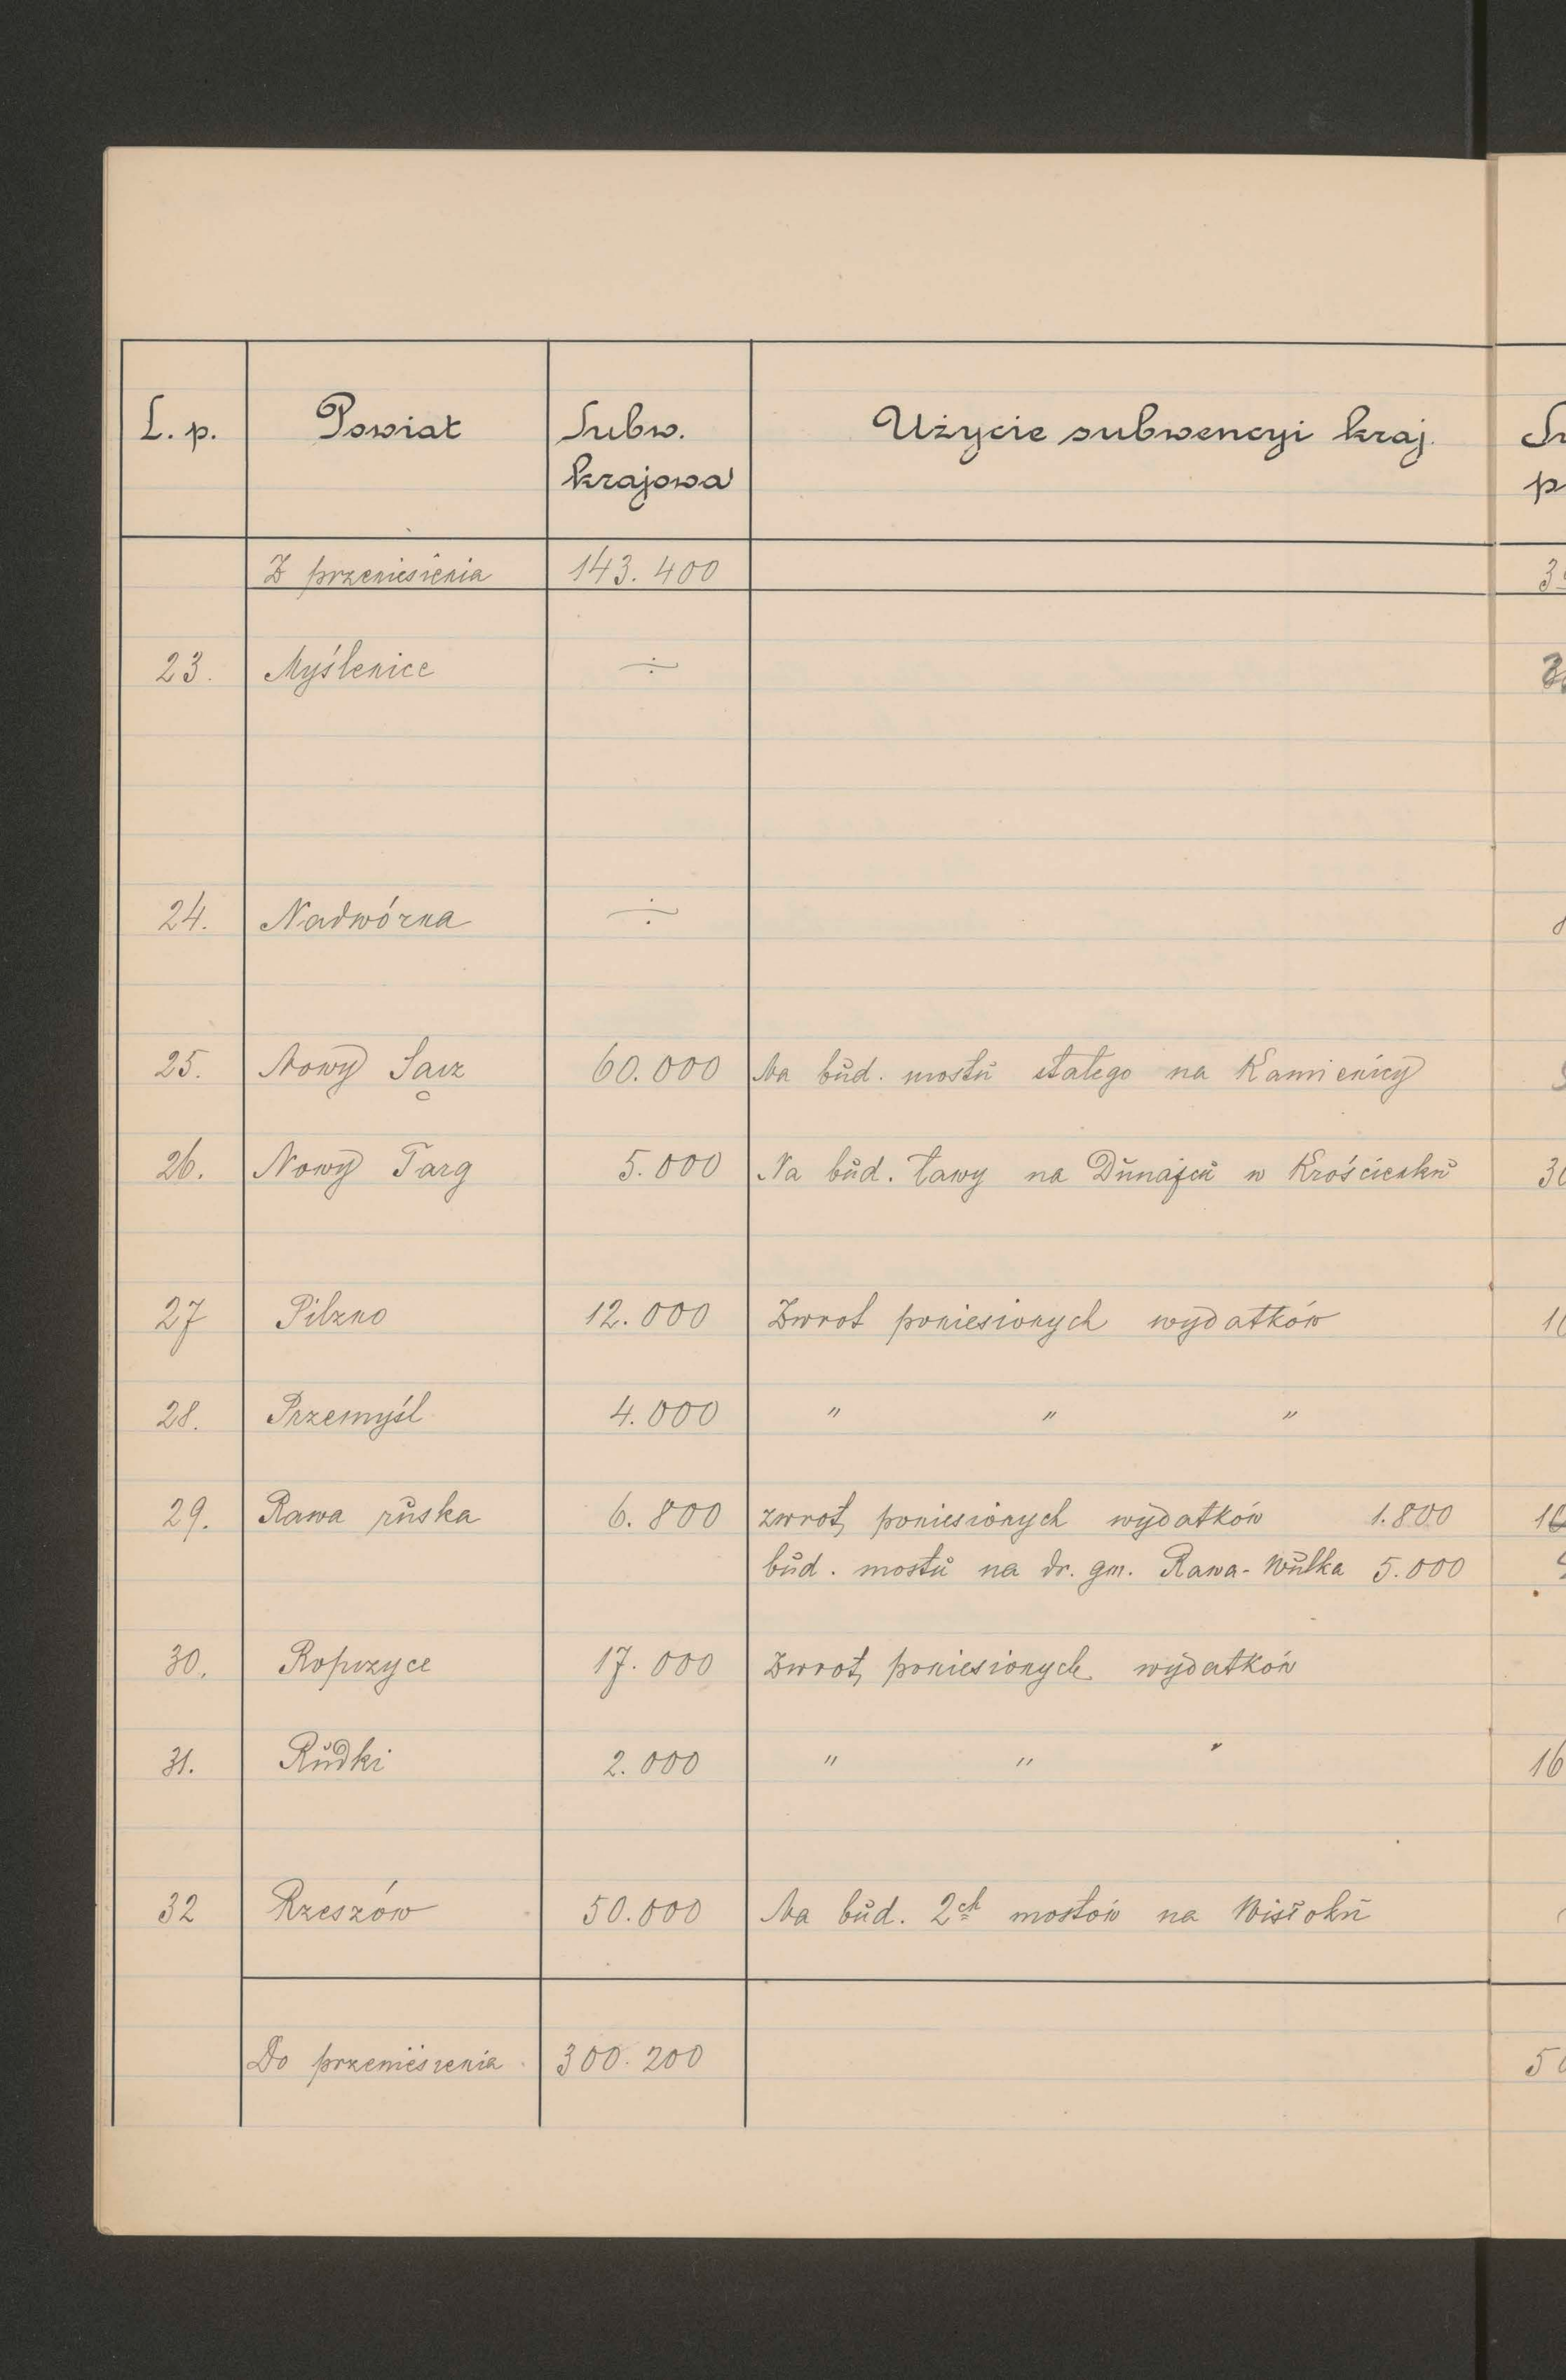 L. p. Powiat Subw. krajowa Użycie subwencyi kraj.
Z przeniesienia 143.400
23. Myślenice ÷
24. Nadwórna ÷
25. Nowy Sącz 60.000 Na bud. mostu stałego na Kamienicy
26. Nowy Targ 5.000 Na bud. ławy na Dunajcu w Krościenku
27 Pilzno 12.000 Zwrot poniesionych wydatków
28. Przemyśl 4.000 " " "
29. Rawa ruska 6.800 zwrot poniesionych wydatków 1.800
bud. mostu na dr. gm. Rawa-Wulka 5.000
30. Ropczyce 17.000 Zwrot poniesionych wydatków
31. Rudki 2.000 " " "
32 Rzeszów 50.000 Na bud. 2ch mostów na Wisłoku
Do przeniesienia 300.200